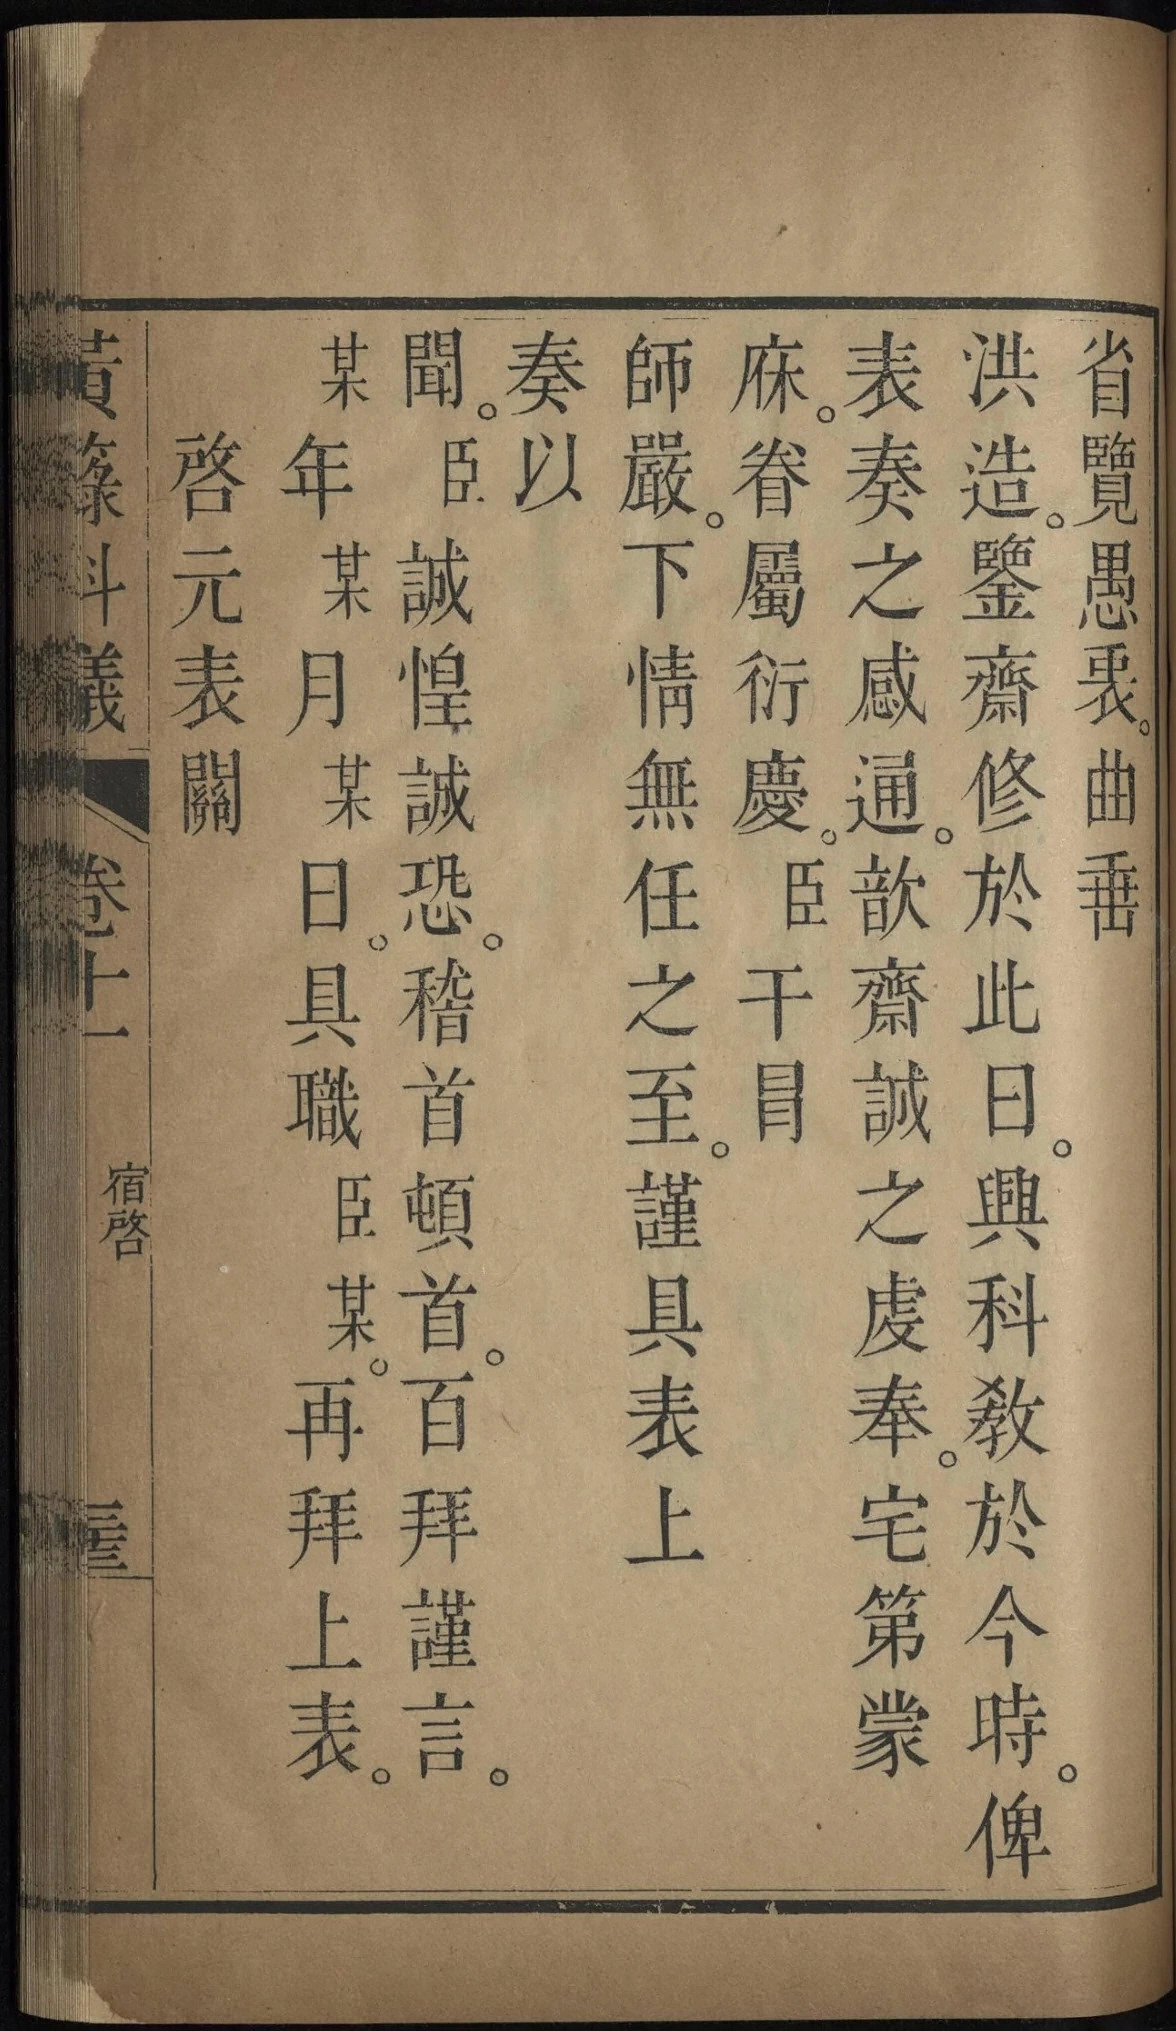 省覽愚衷。曲垂
洪造。鑒齋修於此日。興科教於今時。俾
表奏之感通。歆齋誠之虔奉。宅第蒙
庥。眷屬衍慶。臣干冒
師嚴。下情無任之至。謹具表上
奏以
聞。臣誠惶誠恐。稽首頓首。百拜謹言。
某年某月某日。具職臣某。再拜上表。
啓元表關
黃籙科儀 卷十一 宿啓